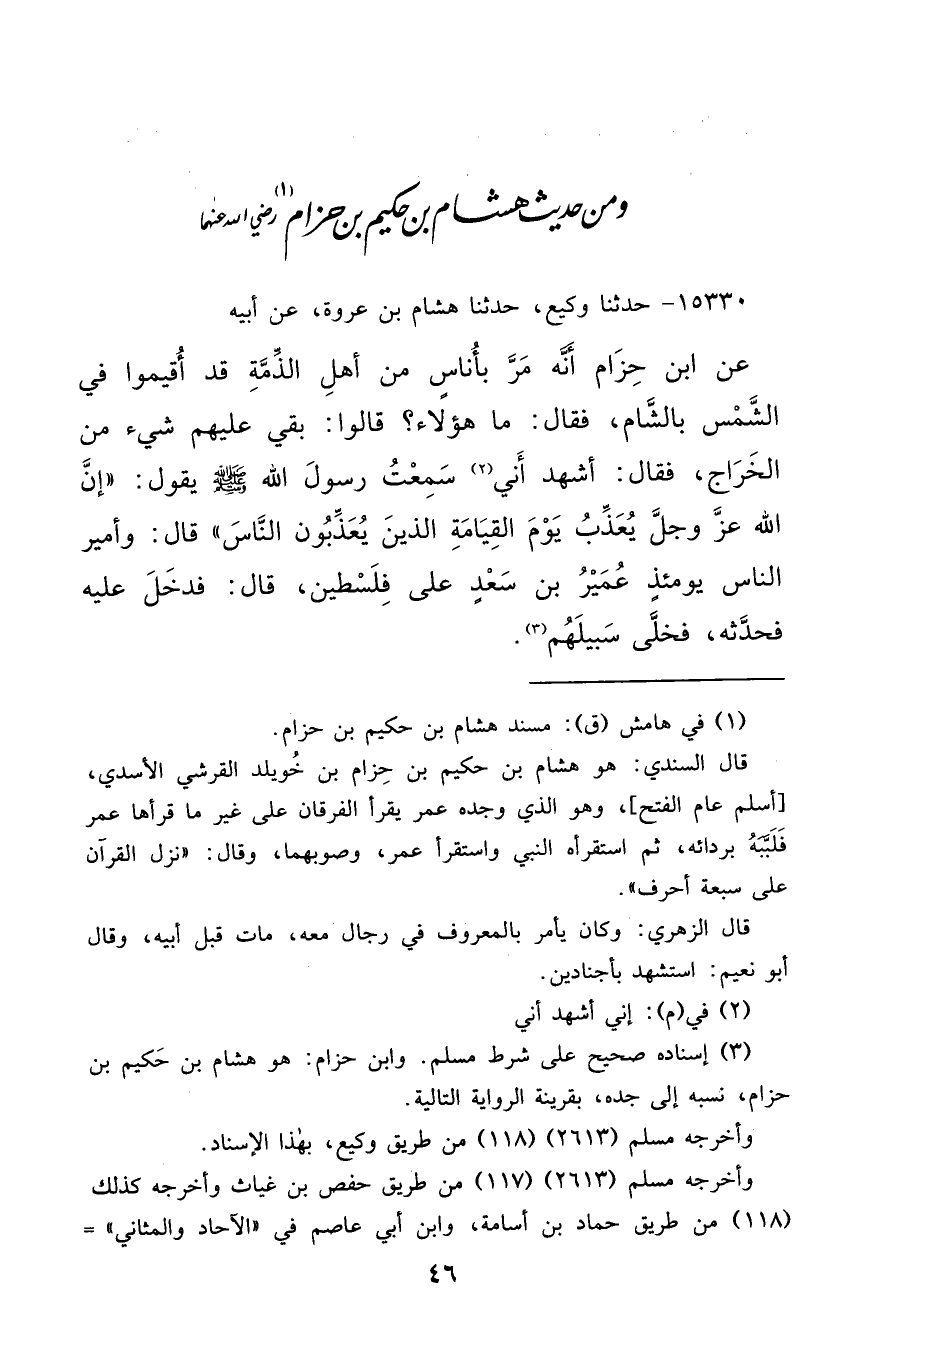 ومن حديث هشام بن حكيم بن حزام (١) رضي الله عنهما
١٥٣٣٠- حدثنا وكيع، حدثنا هشام بن عروة، عن أبيه
عن ابن حِزَام أنَّه مَرَّ بأُناسٍ من أهلِ الذِّمَّةِ قد أُقيموا في
الشَّمْس بالشَّام، فقال: ما هؤلاء؟ قالوا: بقي عليهم شيء من
الخَرَاج، فقال: أشهد أَني(٢) سَمِعْتُ رسولَ الله ﷺ يقول: «إنَّ
الله عزَّ وجلَّ يُعَذِّبُ يَوْمَ القِيَامَةِ الذينَ يُعَذِّبُون النَّاسَ» قال: وأمير
الناس يومئذٍ عُمَيْرُ بن سَعْدٍ على فِلَسْطين، قال: فدخَلَ عليه
فحدَّثه، فخلَّى سَبيلَهُم(٣).
(١) في هامش (ق): مسند هشام بن حكيم بن حزام.
قال السندي: هو هشام بن حكيم بن حِزام بن خُويلد القرشي الأسدي،
[أسلم عام الفتح]، وهو الذي وجده عمر يقرأ الفرقان على غير ما قرأها عمر
فَلَبَّبَهُ بردائه، ثم استقرأه النبي واستقرأ عمر، وصوبهما، وقال: «نزل القرآن
على سبعة أحرف».
قال الزهري: وكان يأمر بالمعروف في رجال معه، مات قبل أبيه، وقال
أبو نعيم: استشهد بأجنادين.
(٢) في(م): إني أشهد أني
(٣) إسناده صحيح على شرط مسلم. وابن حزام: هو هشام بن حَكيم بن
حزام، نسبه إلى جده، بقرينة الرواية التالية.
وأخرجه مسلم (٢٦١٣) (١١٨) من طريق وكيع، بهٰذا الإسناد.
وأخرجه مسلم (٢٦١٣) (١١٧) من طريق حفص بن غياث وأخرجه كذلك
(١١٨) من طريق حماد بن أسامة، وابن أبي عاصم في «الآحاد والمثاني» =
٤٦